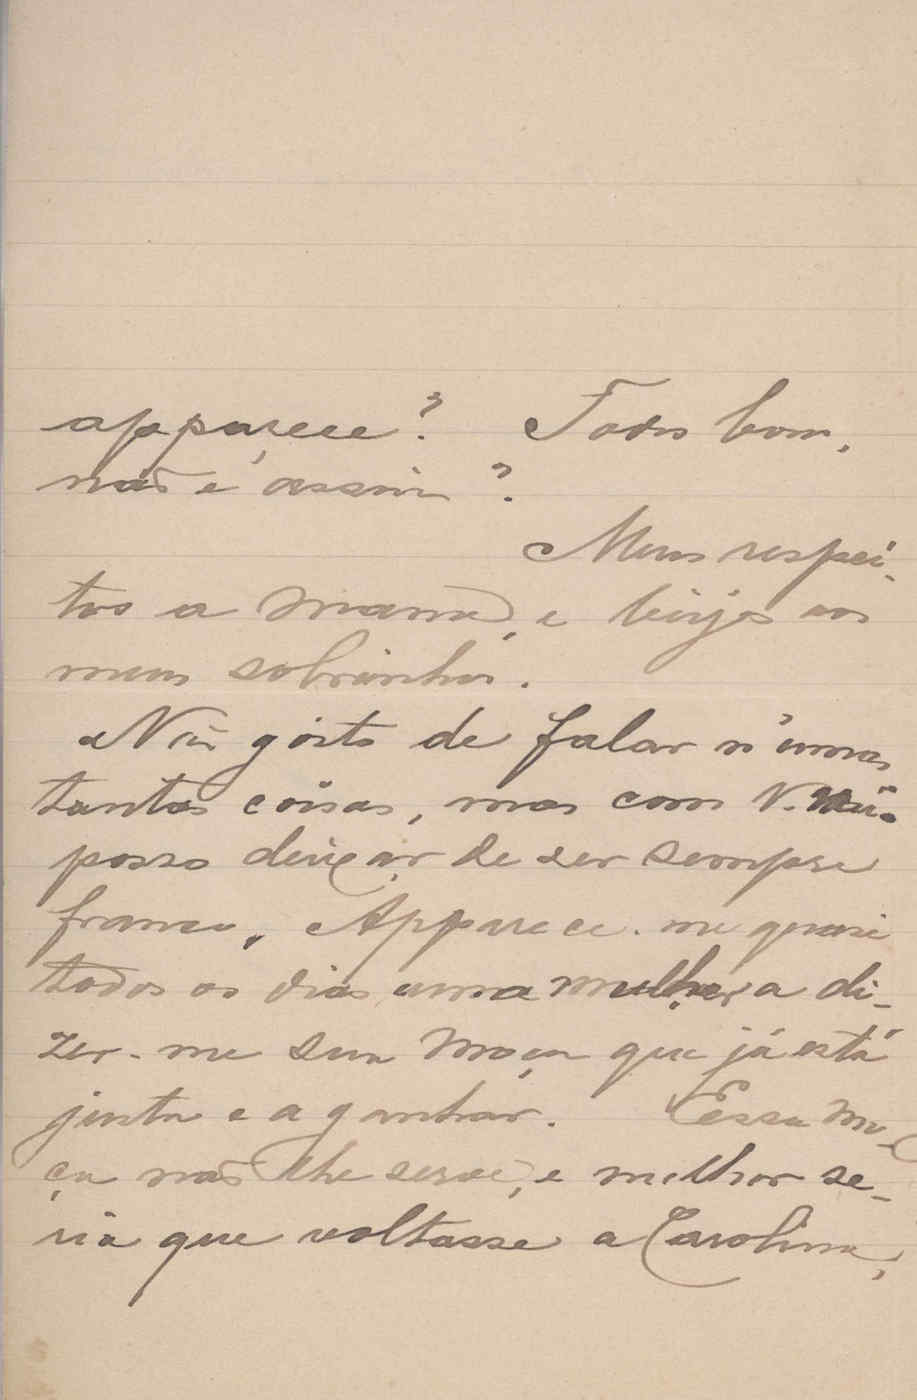 apparece? Todos bom,
não é assim?
Meus respei-
tos a Mamã, e beijos aos
meus sobrinhos.
Não gosto de falar n'umas
tantas coisas, mas com V. não
posso deixar de ser sempre
franco. Apparece-me quasi
todos os dias uma mulher a di-
zer-me sua moça que já está
justa e a ganhar. Essa mo-
ça não lhe serve, e melhor se-
ria que voltasse a Carolina,